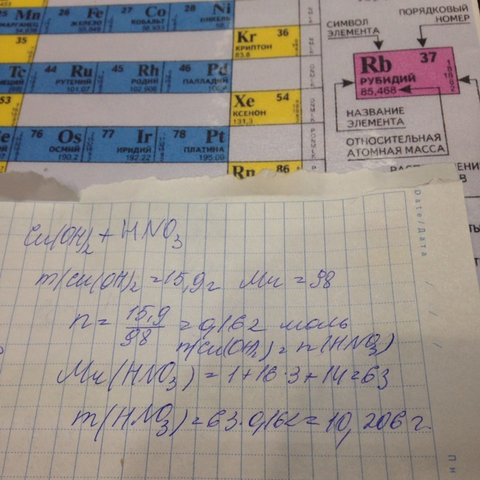 25 Mn 26 Fe 27 Co 28 Ni
МАРГАНЕЦ ЖЕЛЕЗО КОБАЛЬТ НИКЕЛЬ
35 Kr 36
КРИПТОН
83.8
Tc 44 Ru 45 Rh 46 Pd
РУТЕНИЙ РОДИЙ ПАЛЛАДИЙ
101.07
53 Xe 54
КСЕНОН
131,3
76 Os 77 Ir 78 Pt
ОСМИЙ ИРИДИЙ ПЛАТИНА
190.2 192.22 195.09
Rn 86
СИМВОЛ
ЭЛЕМЕНТА
ПОРЯДКОВЫЙ
НОМЕР
Rb 37
РУБИДИЙ
85,468
НАЗВАНИЕ
ЭЛЕМЕНТА
ОТНОСИТЕЛЬНАЯ
АТОМНАЯ МАССА
Date/Дата
Cu(OH)2 + HNO3
m(Cu(OH)2 = 15,9г Mr = 98
n = 15,9/98 = 0,162 моль
n(Cu(OH)2) = n(HNO3)
Mr(HNO3) = 1+16·3+14=63
m(HNO3)=63·0,162=10,206 г.
Пн